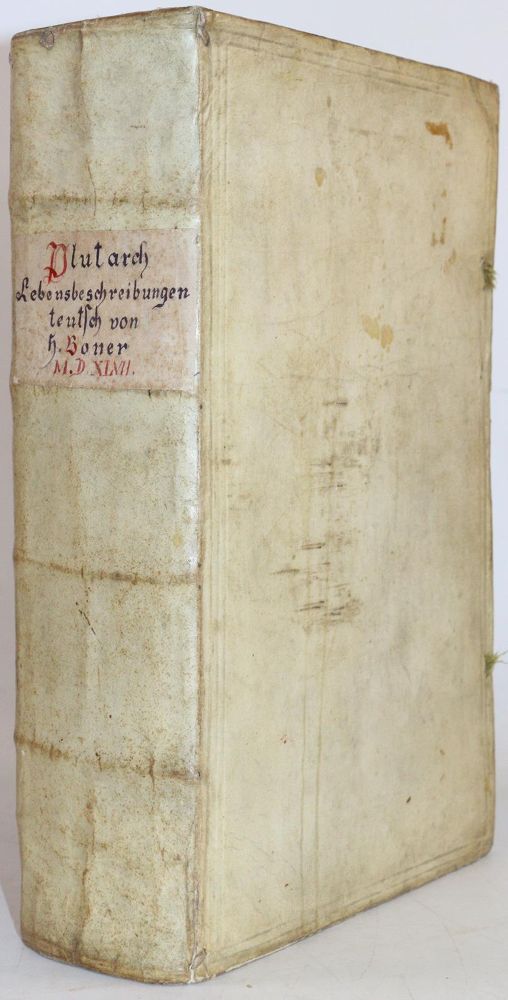 Plutarch
Lebensbeschreibungen
teutsch von
H. Boner
M.D.XLVII.